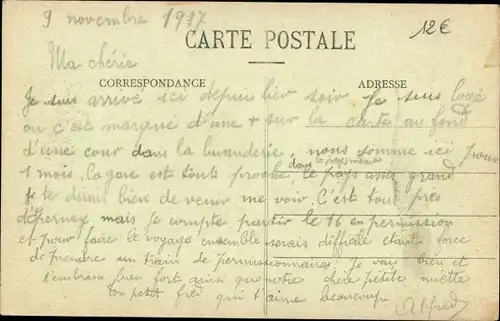 9 novembre 1917
12€
CARTE POSTALE
Ma chérie
CORRESPONDANCE
ADRESSE
Je suis arrivé ici depuis hier soir Je suis logé
ou c'est marqué d'une + sur la carte au fond
d'une cour dans la buanderie, nous somme ici pour
dans le pays même
1 mois. La gare est tout proche, le pays assez grand
je te dirais bien de venir me voir. C'est tout près
d'Epernay mais je compte partir le 16 en permission
et pour faire le voyage ensemble serais difficile etant forcé
de prendre un train de permissionnaires. Je vais bien et
t'embrasse bien fort ainsi que notre chère petite miette
ton petit fred qui t'aime beaucoup
Alfred